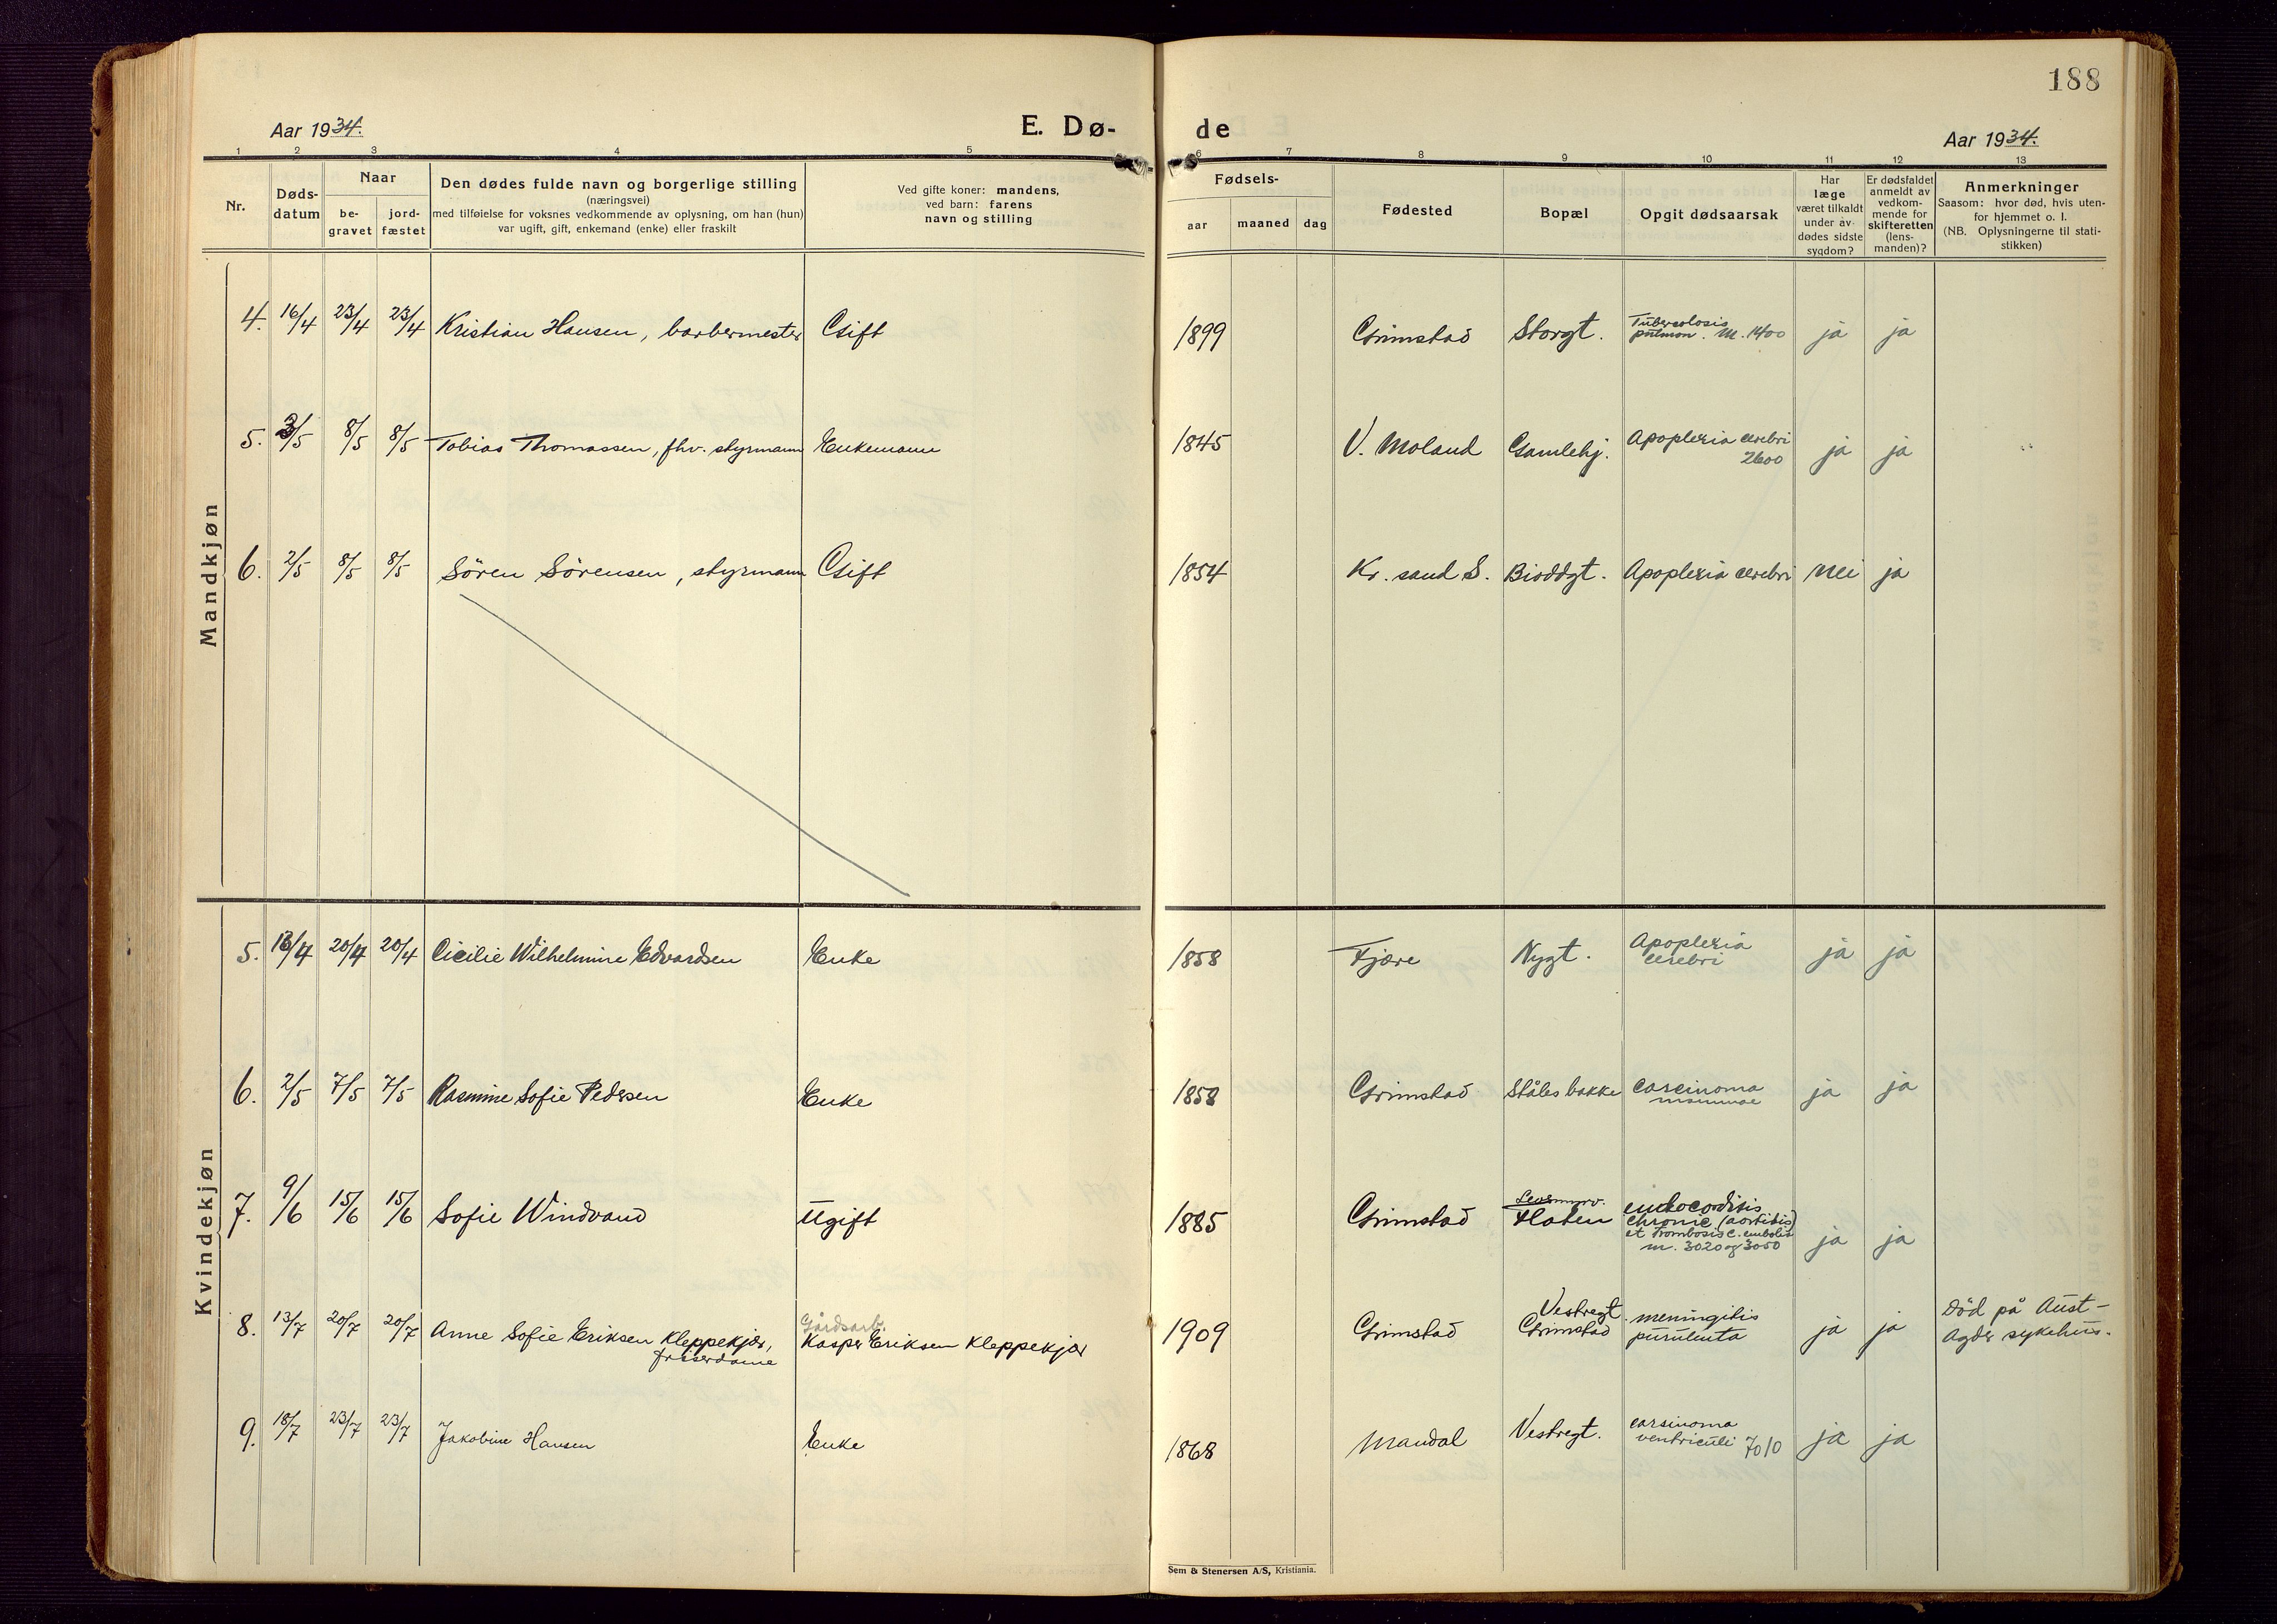 188
Aar 1934.
E. Dø-
de
Aar 1934.
1 2 3 4 5 6 7 8 9 10 11 12 13
Nr.
Døds-
datum
Naar
be-
gravet
jord-
fæstet
Den dødes fulde navn og borgerlige stilling
(næringsvei)
med tilføielse for voksnes vedkommende av oplysning, om han (hun)
var ugift, gift, enkemand (enke) eller fraskilt
Ved gifte koner: mandens,
ved barn: farens
navn og stilling
Fødsels-
aar maaned dag
Fødested
Bopæl
Opgit dødsaarsak
Har
læge
været tilkaldt
under av-
dødes sidste
sygdom?
Er dødsfaldet
anmeldt av
vedkom-
mende for
skifteretten
(lens-
manden)?
Anmerkninger
Saasom: hvor død, hvis uten-
for hjemmet o. l.
(NB. Oplysningerne til stati-
stikken)
Mandkjøn
4. 16/4 23/4 23/4 Kristian Hansen, barbermester Gift 1899 Grimstad Storgt. Tuberculosis
pulmon. M. 1400 ja ja
5. 3/5 8/5 8/5 Tobias Thomassen, fhv. styrmann Enkemann 1845 V. Moland Gamlehj. Apoplexia cerebri
2600 ja ja
6. 2/5 8/5 8/5 Sören Sörensen, styrmann Gift 1854 Kr. sand S. Bioddgt. Apoplexia cerebri nei ja
Kvindekjøn
5. 13/4 20/4 20/4 Cicilie Wilhelmine Edvardsen Enke 1858 Fjære Nygt. Apoplexia
cerebri ja ja
6. 2/5 7/5 7/5 Rasmine Sofie Pedersen Enke 1858 Grimstad Ståles bakke Carcinoma
mammae ja ja
7. 9/6 15/6 15/6 Sofie Windvand Ugift 1885 Grimstad
Haven endocorditis
chronic (aortitis)
et trombosis c. embolia
m. 3020 og 3050 ja ja
8. 13/7 20/7 20/7 Anne Sofie Eriksen Kleppekjær,
friserdame Gårdsarb.
Kasper Eriksen Kleppekjær 1909 Grimstad Vestregt
Grimstad meningitis
purulenta ja ja Död på Aust-
Agder sykehus.
9. 18/7 23/7 23/7 Jakobine Hansen Enke 1868 Mandal Vestregt. carsinoma
ventriculi 7010 ja ja
Sem & Stenersen A/S, Kristiania.